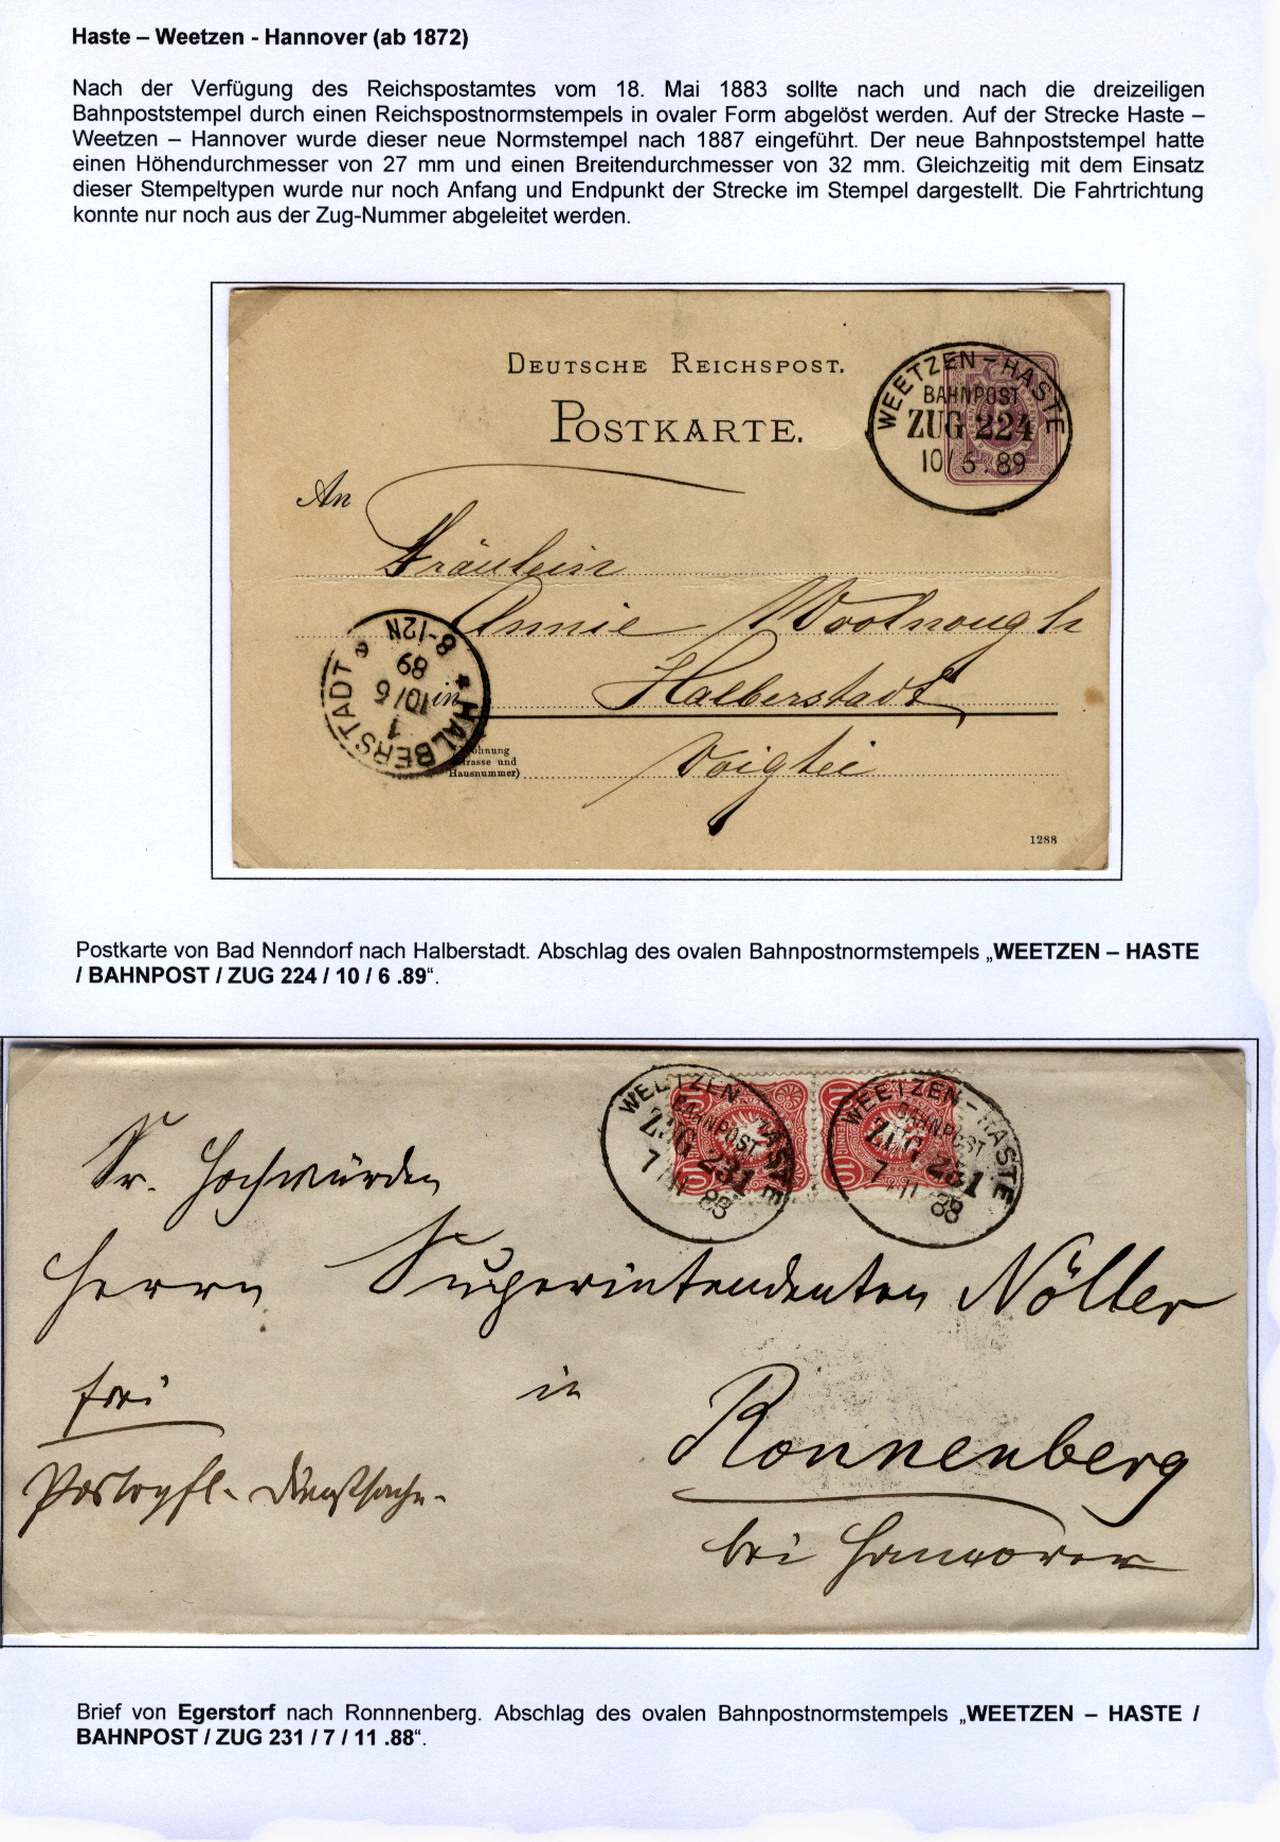 Haste – Weetzen - Hannover (ab 1872)
Nach der Verfügung des Reichspostamtes vom 18. Mai 1883 sollte nach und nach die dreizeiligen
Bahnpoststempel durch einen Reichspostnormstempels in ovaler Form abgelöst werden. Auf der Strecke Haste –
Weetzen – Hannover wurde dieser neue Normstempel nach 1887 eingeführt. Der neue Bahnpoststempel hatte
einen Höhendurchmesser von 27 mm und einen Breitendurchmesser von 32 mm. Gleichzeitig mit dem Einsatz
dieser Stempeltypen wurde nur noch Anfang und Endpunkt der Strecke im Stempel dargestellt. Die Fahrtrichtung
konnte nur noch aus der Zug-Nummer abgeleitet werden.
DEUTSCHE REICHSPOST.
POSTKARTE.
WEETZEN – HASTE
BAHNPOST
ZUG 224
10/6.89
An
Fräulein
Annie Woolnough
in
Halberstadt
Voigtei
(Wohnung
Strasse und
Hausnummer)
HALBERSTADT
1
10/6
89
8-12N
1288
Postkarte von Bad Nenndorf nach Halberstadt. Abschlag des ovalen Bahnpostnormstempels „WEETZEN – HASTE
/ BAHNPOST / ZUG 224 / 10 / 6 .89“.
WEETZEN – HASTE
BAHNPOST
ZUG 231
7/11 88
WEETZEN – HASTE
BAHNPOST
ZUG 231
7/11 88
Sr. Hochwürden
Herrn Superintendenten Nölter
frei in Ronnenberg
Postopfl. Dienstsache.
bei Hannover
Brief von Egerstorf nach Ronnnenberg. Abschlag des ovalen Bahnpostnormstempels „WEETZEN – HASTE /
BAHNPOST / ZUG 231 / 7 / 11 .88“.